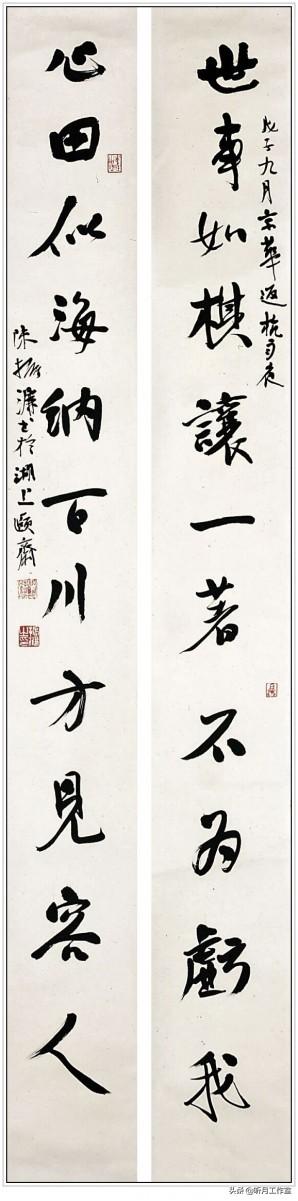 世事如棋讓一著不為虧我
戊子九月京華返杭夜
心田似海納百川方見容人
陳振濂書於湖上頤齋
头条@昕月工作室